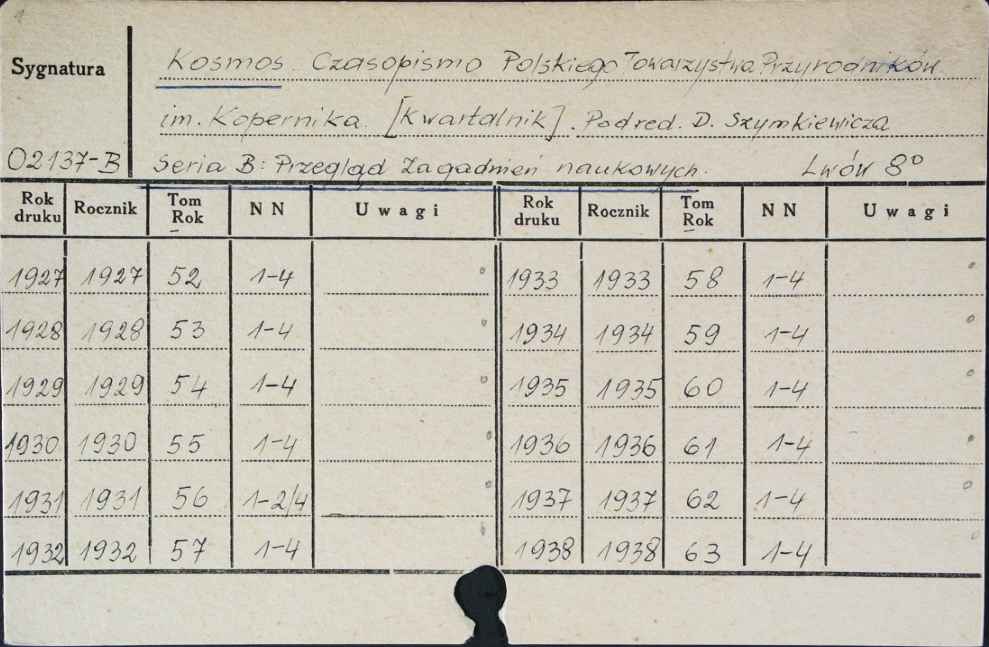 Sygnatura
Kosmos Czasopismo Polskiego Towarzystwa Przyrodników
im. Kopernika [Kwartalnik]. Pod red. D. Szymkiewicza
O2137-B Seria B: Przegląd Zagadnień naukowych. Lwów 8°
Rok druku Rocznik Tom Rok NN Uwagi Rok druku Rocznik Tom Rok NN Uwagi
1927 1927 52 1-4 1933 1933 58 1-4
1928 1928 53 1-4 1934 1934 59 1-4
1929 1929 54 1-4 1935 1935 60 1-4
1930 1930 55 1-4 1936 1936 61 1-4
1931 1931 56 1-2/4 1937 1937 62 1-4
1932 1932 57 1-4 1938 1938 63 1-4